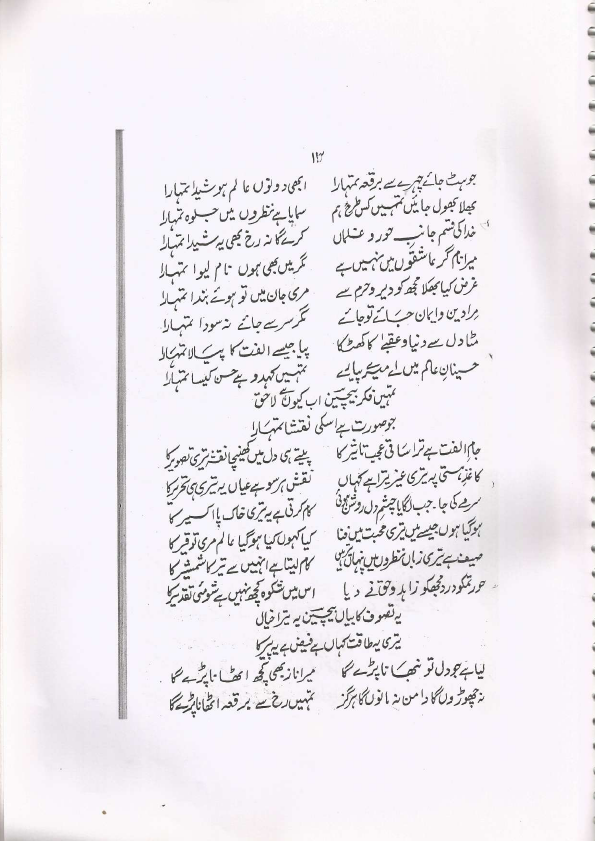 ۱۱۲
جو ہٹ جائے چہرے سے برقعہ تمہارا ابھی دونوں عالم ہو شیدا تمہارا
بھلا بھول جائیں تمہیں کس طرح ہم سمایا ہے نظروں میں جلوہ تمہارا
خدا کی قسم جانبِ حور و غلماں کرے گا نہ رخ بھی یہ شیدا تمہارا
میرا نام گر عاشقوں میں نہیں ہے مگر میں بھی ہوں نام لیوا تمہارا
غرض کیا بھلا مجھ کو دیر و حرم سے مری جان میں تو ہوئے بندا تمہارا
مرا دین و ایمان جائے تو جائے مگر سر سے جائے نہ سودا تمہارا
مٹا دل سے دنیا و عقبےٰ کا کھٹکا پیا جیسے الفت کا پیالا تمہارا
حسینانِ عالم میں اے میرے پیارے تمہیں کہدو ہے حسن کیسا تمہارا
تمہیں فکر بیچین اب کیوں ہے لاحق
جو صورت ہے اسکی نقشا تمہارا
جام الفت ہے ترا ساقی عجب تاثیر کا پیتے ہی دل میں کھنچا نقشہ تری تصویر کا
کاغذِ ہستی پہ تیری غیر تیرا ہے کہاں نقش ہر سو ہے عیاں یہ تیری ہی تحریر کا
سرمے کی جا۔ جب لگایا چشمِ دل روشن ہوئی کام کرتی ہے یہ تیری خاک پا اکسیر کا
ہو گیا ہوں جیسے میں تیری محبت میں فنا کیا کہوں کیا ہو گیا عالم مری توقیر کا
صیف ہے تیری زباں نظروں میں پنہاں کام لیتا ہے انہیں سے تیر کا شمشیر کا
حور تمکو درد مجھکو زاہد و حق نے دیا اس میں شکوہ کچھ نہیں ہے شوئی تقدیر کا
یہ تصوف کا بیاں بیچین یہ تیرا خیال
تیری یہ طاقت کہاں ہے فیض ہے یہ پیر کا
لیا ہے جو دل تو نبھانا پڑے گا میرا ناز بھی کچھ اٹھانا پڑے گا
نہ چھوڑوں گا دامن نہ مانوں گا ہرگز تمہیں رخ سے برقعہ اٹھانا پڑے گا